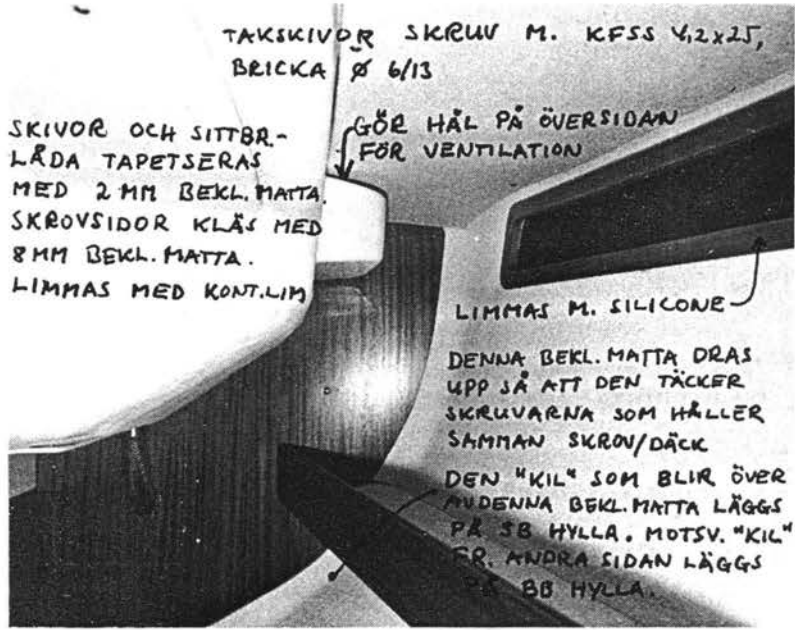 TAKSKIVOR SKRUV M. KFSS 4,2x25,
BRICKA Ø 6/13
SKIVOR OCH SITTBR.-
LÅDA TAPETSERAS
MED 2 MM BEKL. MATTA.
SKROVSIDOR KLÄS MED
8 MM BEKL. MATTA.
LIMMAS MED KONT.LIM
GÖR HÅL PÅ ÖVERSIDAN
FÖR VENTILATION
LIMMAS M. SILICONE
DENNA BEKL. MATTA DRAS
UPP SÅ ATT DEN TÄCKER
SKRUVARNA SOM HÅLLER
SAMMAN SKROV/DÄCK
DEN "KIL" SOM BLIR ÖVER
AV DENNA BEKL. MATTA LÄGGS
PÅ SB HYLLA. MOTSV. "KIL"
FR. ANDRA SIDAN LÄGGS
PÅ BB HYLLA.